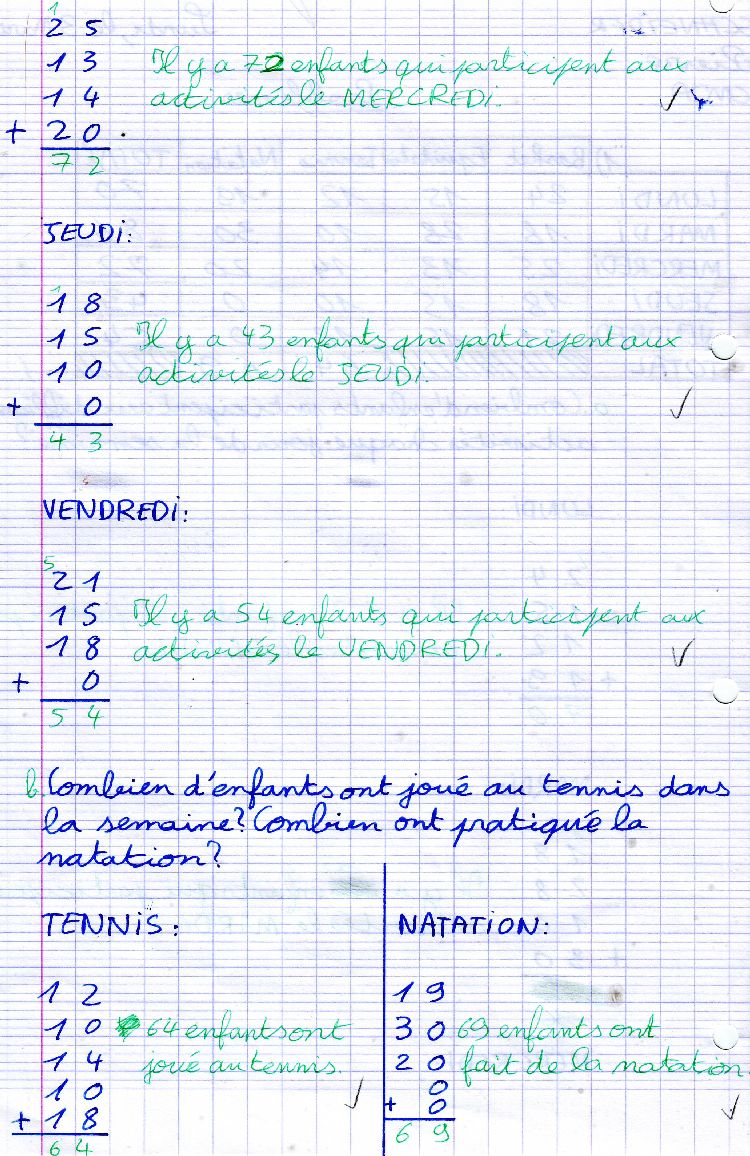 1
2 5
1 3 Il y a 72 enfants qui participent aux
1 4 activités le MERCREDI.
+ 2 0
7 2
JEUDI:
1
1 8
1 5 Il y a 43 enfants qui participent aux
1 0 activités le JEUDI.
+ 0
4 3
VENDREDI:
5
2 1
1 5 Il y a 54 enfants qui participent aux
1 8 activités le VENDREDI.
+ 0
5 4
b Combien d'enfants ont joué au tennis dans
la semaine? Combien ont pratiqué la
natation?
TENNIS:
1 2
1 0 64 enfants ont
1 4 joué au tennis.
1 0
+ 1 8
6 4
NATATION:
1 9
3 0 69 enfants ont
2 0 fait de la natation.
0
+ 0
6 9